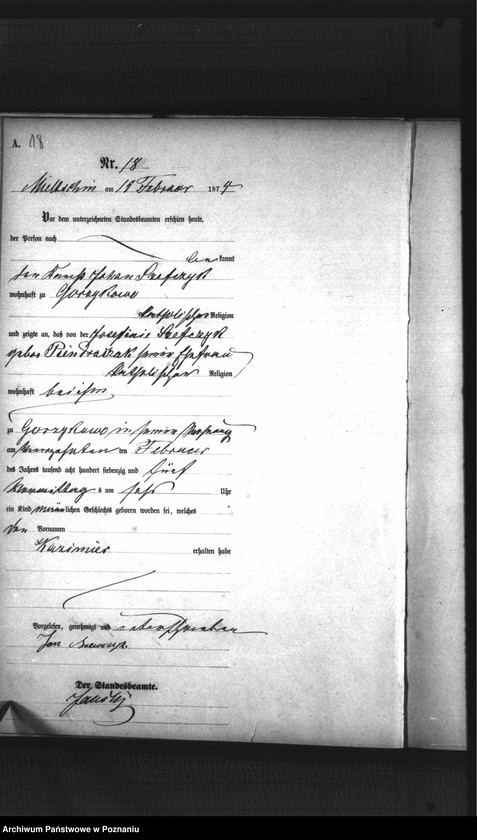 A. 18
Nr. 18
Mieltschin am 19 Februar 187
Vor dem unterzeichneten Standesbeamten erschien heute,
der Person nach
bekannt
Johan Szefczyk
wohnhaft zu Gorzykowo
katholischer Religion
und zeigte an, daß von der Josefine Szefczyk
gebor seiner Ehefrau
katholischer Religion
wohnhaft bei ihm
zu Gorzykowo in seiner Wohnung
am ten Februar
des Jahres tausend acht hundert siebenzig und fünf
Vormittag s um Uhr
ein Kind männlichen Geschlechts geboren worden sei, welches
den Vornamen
Kazimier erhalten habe
Vorgelesen, genehmigt und unterschrieben
Jan
Der Standesbeamte.
Archiwum Państwowe w Poznaniu